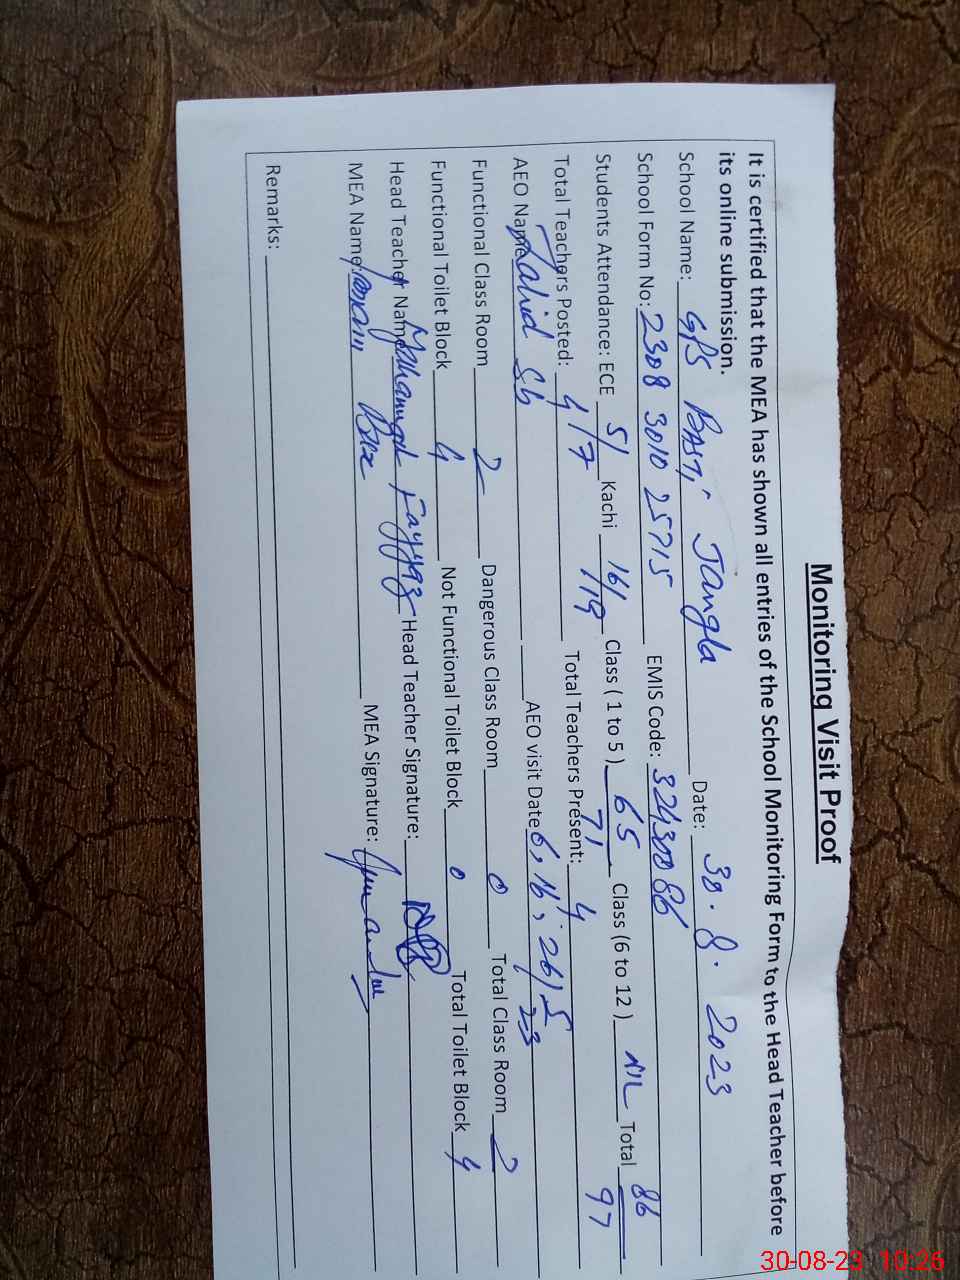 Monitoring Visit Proof
It is certified that the MEA has shown all entries of the School Monitoring Form to the Head Teacher before
its online submission.
School Name: GPS BASTi Jangla Date: 30.8.2023
School Form No: 2308 3010 25715 EMIS Code: 32430086
Students Attendance: ECE 5/7 Kachi 16/19 Class ( 1 to 5 ) 65/71 Class (6 to 12 ) NIL Total 86/97
Total Teachers Posted: 4 Total Teachers Present: 4
AEO Name Zahid Sb AEO visit Date 6, 16, 26/5 23
Functional Class Room 2 Dangerous Class Room 0 Total Class Room 2
Functional Toilet Block 4 Not Functional Toilet Block 0 Total Toilet Block 4
Head Teacher Name Muhammad Fayyaz Head Teacher Signature:
MEA Name: MEA Signature:
Remarks:
30-08-23 10:26